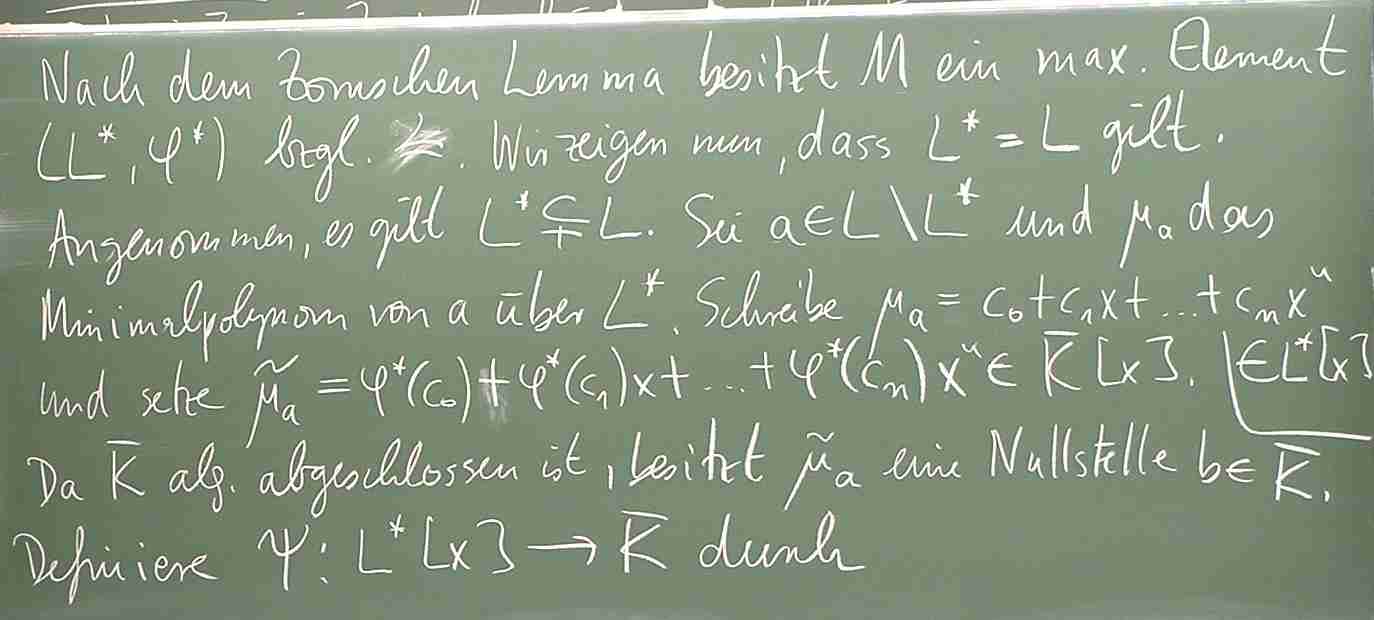 Nach dem Zornschen Lemma besitzt M ein max. Element
(L*, φ*) bzgl. ≤. Wir zeigen nun, dass L* = L gilt.
Angenommen, es gilt L* ⊊ L. Sei a ∈ L \ L* und μₐ das
Minimalpolynom von a über L*. Schreibe μₐ = c₀ + c₁x + ... + cₙxⁿ
∈ L*[x]
und setze μ̃ₐ = φ*(c₀) + φ*(c₁)x + ... + φ*(cₙ)xⁿ ∈ K̄[x].
Da K̄ alg. abgeschlossen ist, besitzt μ̃ₐ eine Nullstelle b ∈ K̄.
Definiere Ψ: L*[x] → K̄ durch